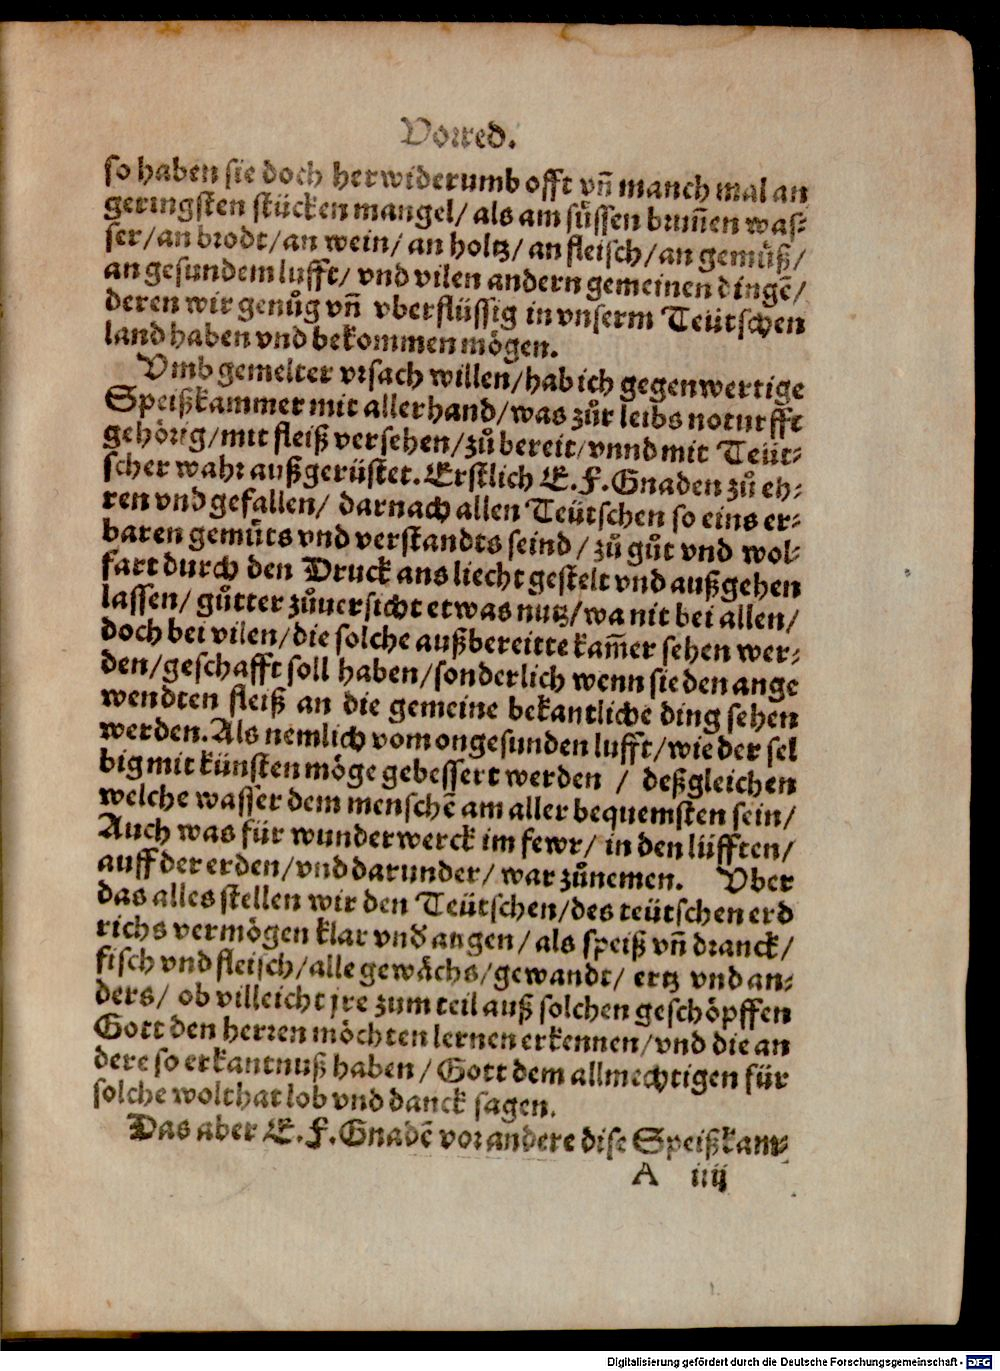 Vorred.
so haben sie doch herwiderumb offt vñ manch mal an
geringsten stücken mangel/ als am süssen brun̄en was-
ser/an brodt/an wein/ an holtz/ an fleisch/ an gemüß/
an gesundem lufft/ vnd vilen andern gemeinen dingē/
deren wir genůg vñ vberflüssig in vnserm Teütschen
land haben vnd bekommen mögen.
Vmb gemelter vrsach willen/hab ich gegenwertige
Speißkammer mit allerhand/was zůr leibs noturfft
gehörig/mit fleiß versehen/zů bereit/vnnd mit Teüt-
scher wahr außgerüstet. Erstlich E. F. Gnaden zů eh-
ren vnd gefallen/ darnach allen Teütschen so eins er-
baren gemüts vnd verstandts seind / zů gůt vnd wol-
fart durch den Druck ans liecht gestelt vnd außgehen
lassen/ gůtter zůuersicht etwas nutz/wa nit bei allen/
doch bei vilen/die solche außbereitte kam̄er sehen wer-
den/geschafft soll haben/sonderlich wenn sie den ange
wendten fleiß an die gemeine bekantliche ding sehen
werden. Als nemlich vom ongesunden lufft/wie der sel
big mit künsten möge gebessert werden / deßgleichen
welche wasser dem menschē am aller bequemsten sein/
Auch was für wunderwerck im fewr/ in den lüfften/
auff der erden/vnd darunder/ war zůnemen. Vber
das alles stellen wir den Teütschen/des teütschen erd
richs vermögen klar vnd augen/ als speiß vñ dranck/
fisch vnd fleisch/alle gewächs/gewandt/ ertz vnd an-
ders/ ob villeicht jre zum teil auß solchen geschöpffen
Gott den herren möchten lernen erkennen/vnd die an
dere so erkantnuß haben / Gott dem allmechtigen für
solche wolthat lob vnd danck sagen.
Das aber E. F. Gnadē vor andere dise Speißkam-
A iiij
Digitalisierung gefördert durch die Deutsche Forschungsgemeinschaft - DFG